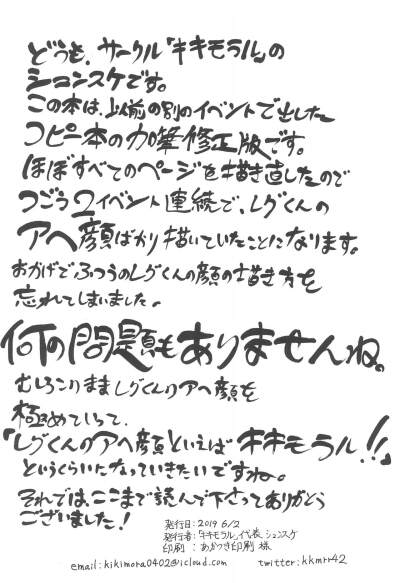 どうも、サークル「キキモラル」の
ションスケです。
この本は、以前の別のイベントで出した
コピー本の加筆修正版です。
ほぼすべてのページを描き直したので
つごう2イベント連続で、レグくんの
アヘ顔ばかり描いていたことになります。
おかげでふつうのレグくんの顔の描き方を
忘れてしまいました。
何の問題もありませんね。
むしろこのままレグくんのアヘ顔を
極めていって、
「レグくんのアヘ顔といえばキキモラル!!」
というくらいになっていきたいですね。
それでは、ここまで読んで下さってありがとう
ございました!
発行日:2019 6/2
発行者:「キキモラル」代表 ションスケ
印刷:あかつき印刷 様
email:kikimora0402@icloud.com twitter:kkmrr42